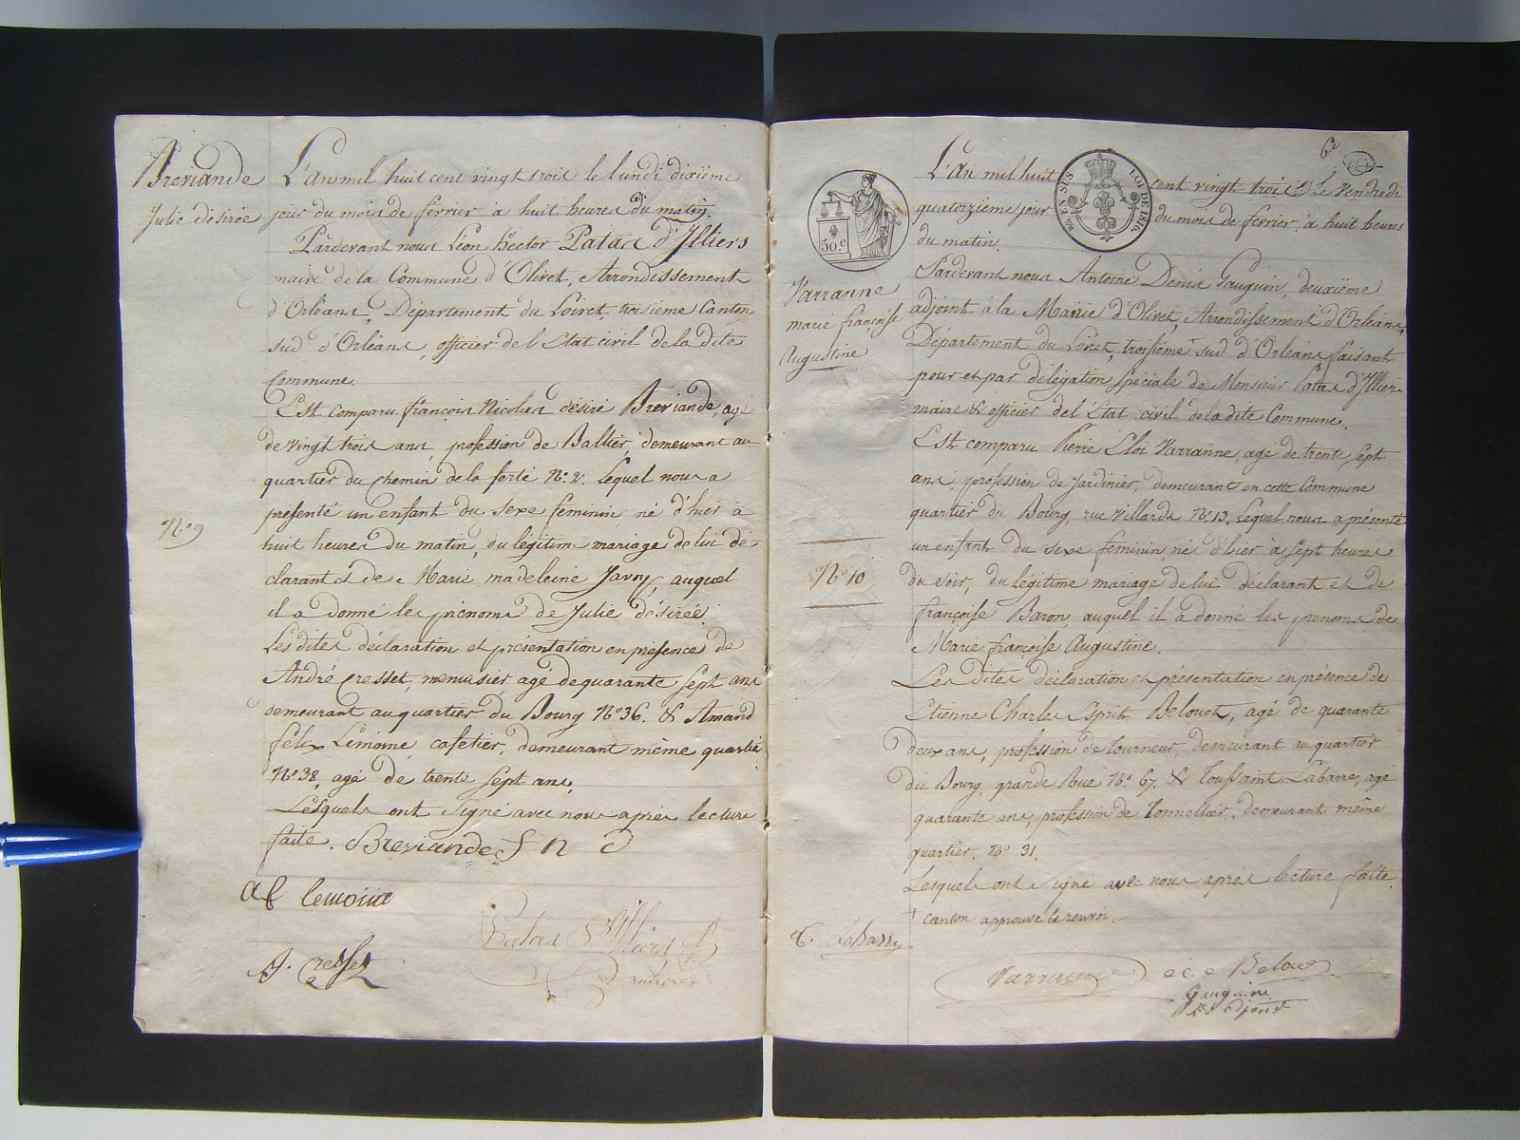 Breviande
Julie désirée
L'an mil huit cent vingt trois le lundi dixième
jour du mois de février à huit heures du matin.
Pardevant nous Léon hector Patas d'Illiers
maire de la Commune d'Olivet, Arrondissement
d'Orléans, Département du Loiret, troisième Canton
sud d'Orléans, officier de l'Etat civil de la dite
Commune
Est comparu françois Nicolas désiré Breviande, agé
de vingt trois ans, profession de Ballier, demeurant au
quartier du chemin de la ferté N° 2. lequel nous a
présenté un enfant du sexe feminin né d'hier à
huit heures du matin, du légitime mariage de lui dé-
clarant et de Marie madeleine Javoy, auquel
il a donné les prénoms de Julie désirée.
Les dites déclaration et présentation en présence de
André Cresset, menuisier agé de quarante sept ans
demeurant au quartier du Bourg N° 36. & Amand
felix Lemoine cafetier, demeurant même quartié
N° 38, agé de trente sept ans,
Lesquels ont signé avec nous après lecture
faite. Breviande f n d
N° 9
af lemoine
A. Cresset
Patas d'Illiers
6e
L'An mil huit cent vingt trois Le Vendredi
quatorzieme jour du mois de février, à huit heures
du matin.
50.c
LOI DE 1816
Pardevant nous Antoine Denis Gauguin, deuxième
adjoint à la Mairie d'Olivet, Arrondissement d'Orléans,
Département du Loiret, troisième sud d'Orléans faisant
pour et par délégation spéciale de Monsieur Patas d'Illiers
maire & officier de l'Etat civil de la dite Commune.
Varranne
marie françoise
Augustine
Est comparu Pierre Eloi Varranne, agé de trente sept
ans, profession de Jardinier, demeurant en cette Commune
quartier du Bourg, rue Villarda N° 13. lequel nous a présenté
un enfant du sexe feminin né d'hier à sept heures
du soir, du légitime mariage de lui déclarant et de
françoise Baron, auquel il a donné les prenoms de
Marie françoise Augustine.
N° 10
Les dites déclaration et présentation en présence de
Etienne Charles Esprit Belouet, agé de quarante
deux ans, profession de tourneur, demeurant au quartier
du Bourg, grande Rue N° 67. & Toussaint Labarre, agé
quarante ans, profession de Tonnellier, demeurant même
quartier, N° 31.
Lesquels ont signé avec nous après lecture faite.
† canton approuvé le renvoi.
T. Labarre
Varranne
e c e Belouet
Gauguin
adjoint